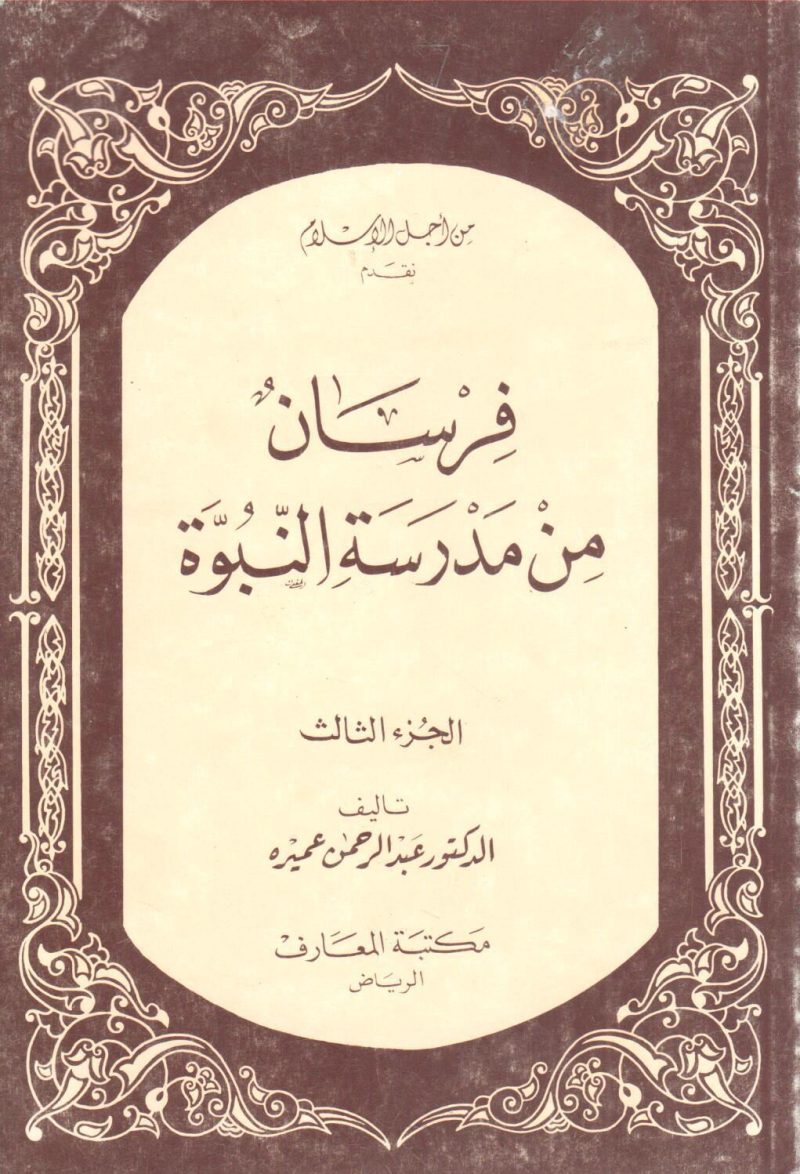 من أجل الإسلام
نقدم
فِرْسَانٌ
مِنْ مَدْرَسَةِ النُّبُوَّة
الجزء الثالث
تأليف
الدكتور عبد الرحمن عميره
مكتبة المعارف
الرياض